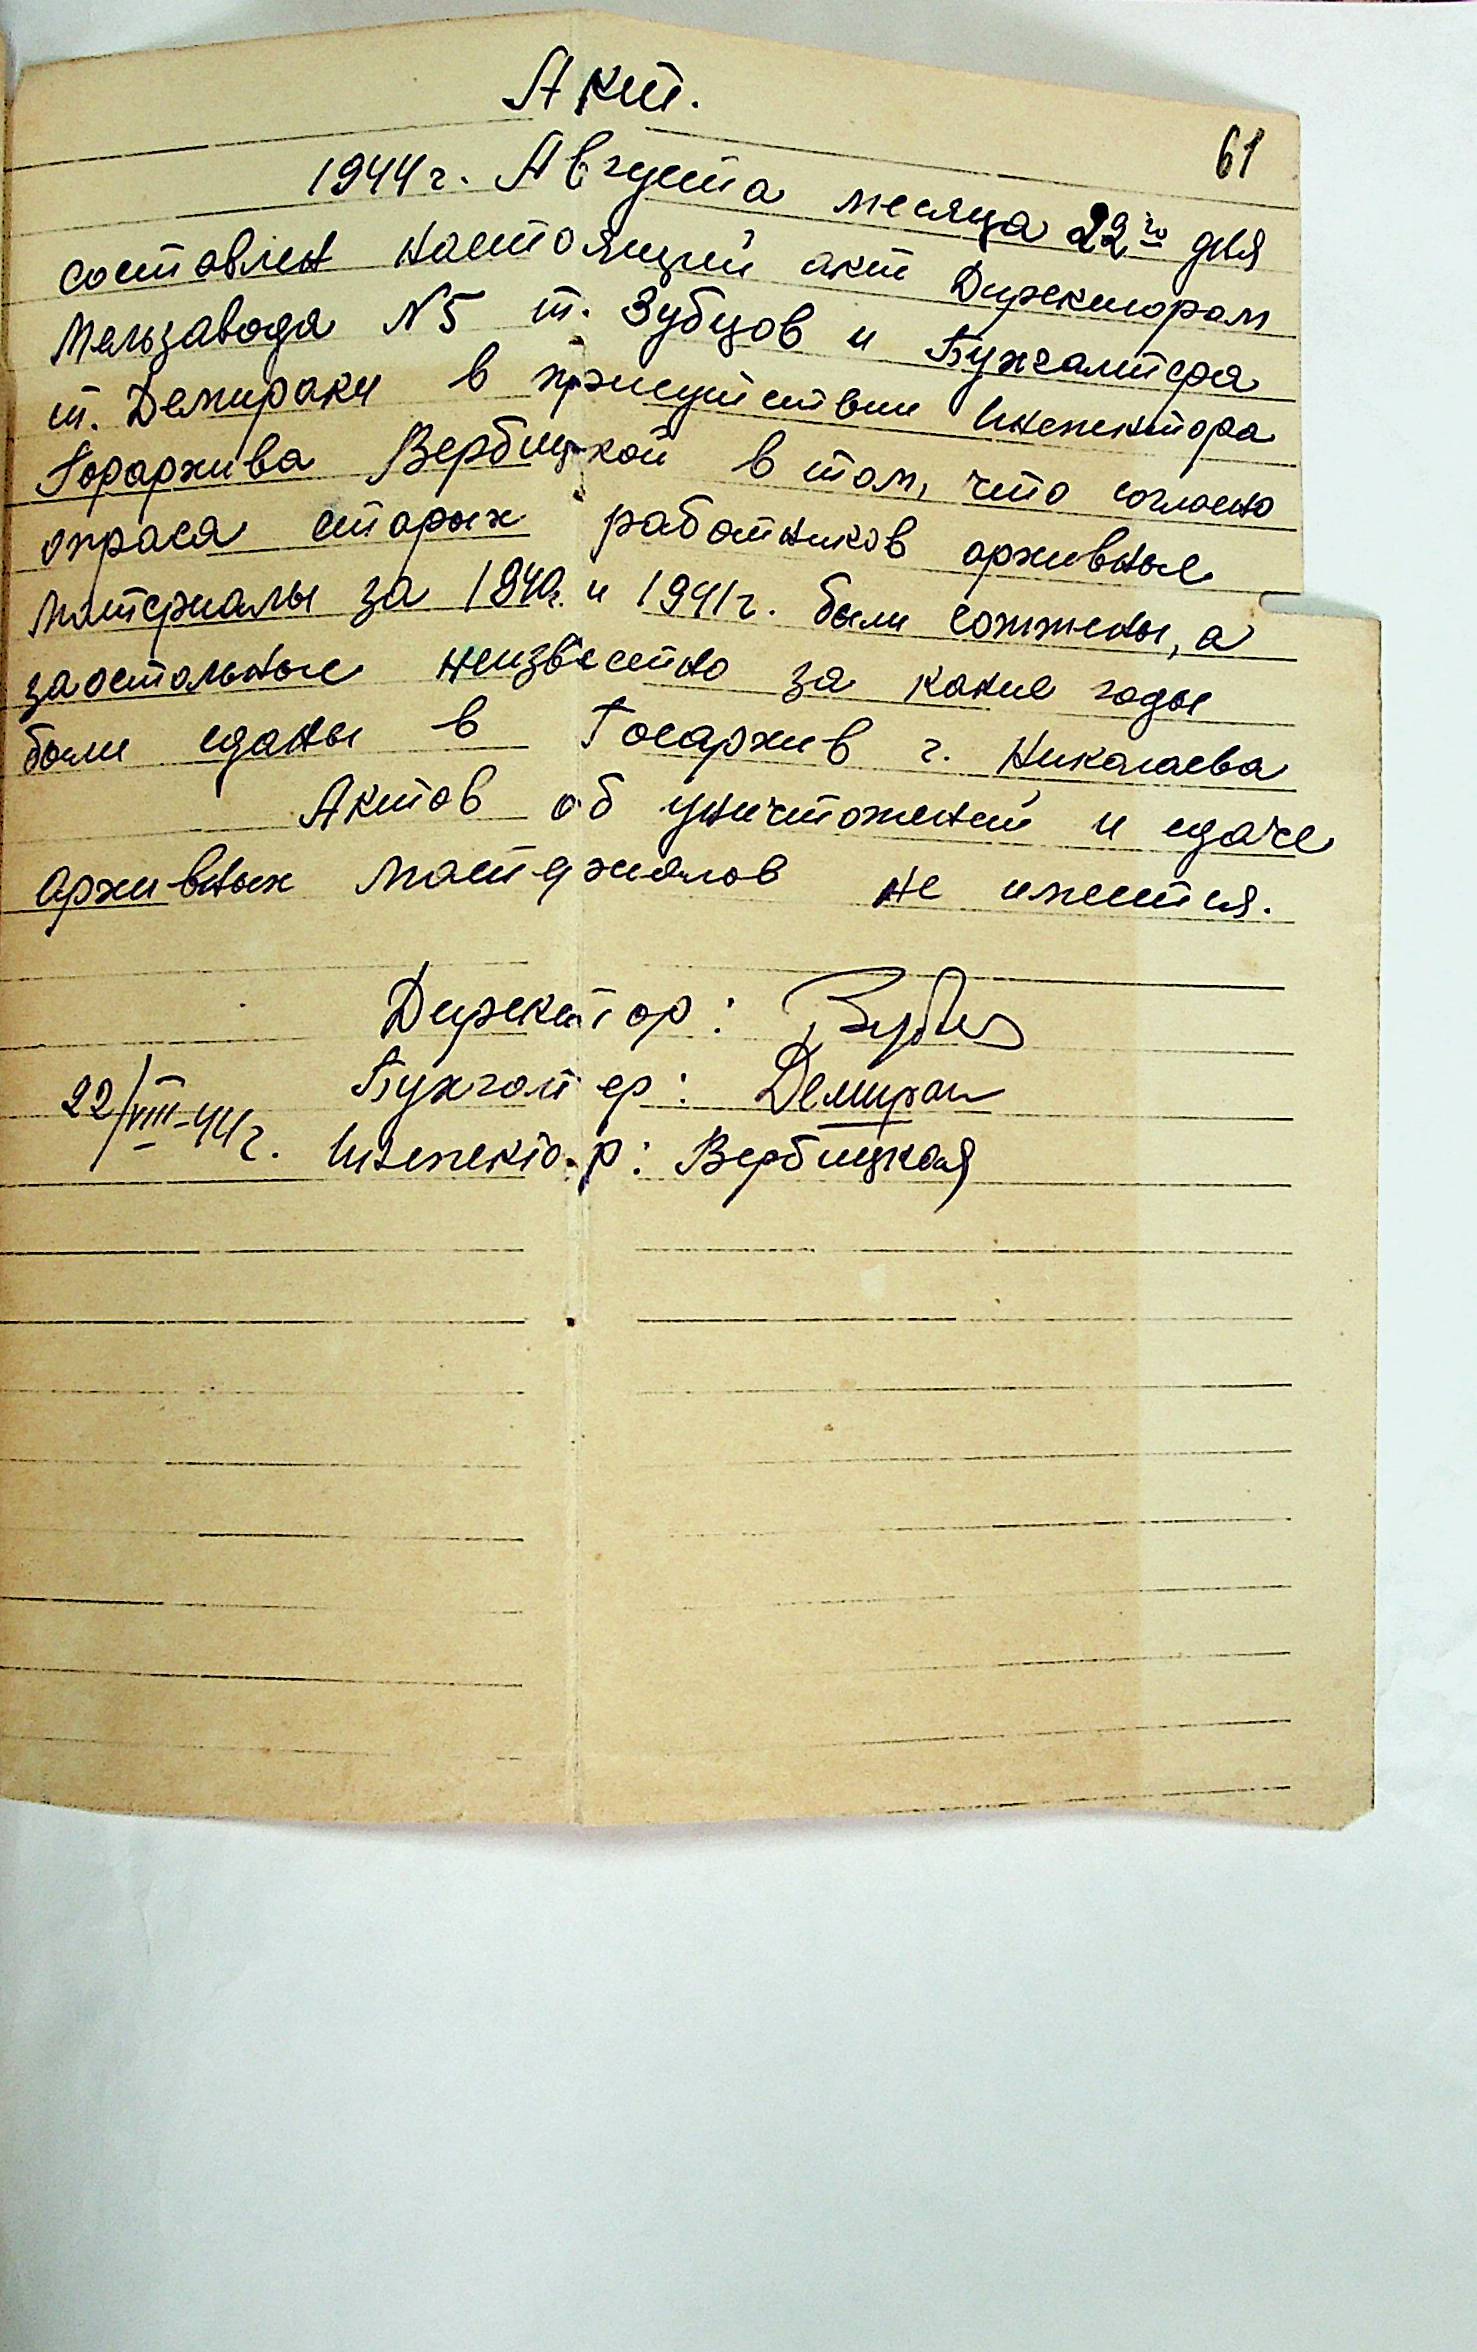 Акт.
61
1944 г. Августа месяца 22го дня
составлен настоящий акт Директором
Мельзавода N5 т. Зубцов и Бухгалтера
т. Демираки в присутствии Инспектора
Горархива Вербицкой в том, что согласно
опроса старых работников архивные
материалы за 1940г. и 1941г. были сожжены, а
заостальные неизвестно за какие годы
были сданы в Госархив г. Николаева
Актов об уничтожений и сдаче
архивных материалов не имеется.
Директор: Зубцов
Бухгалтер: Демираки
22/VIII-44г. Инспектор: Вербицкая